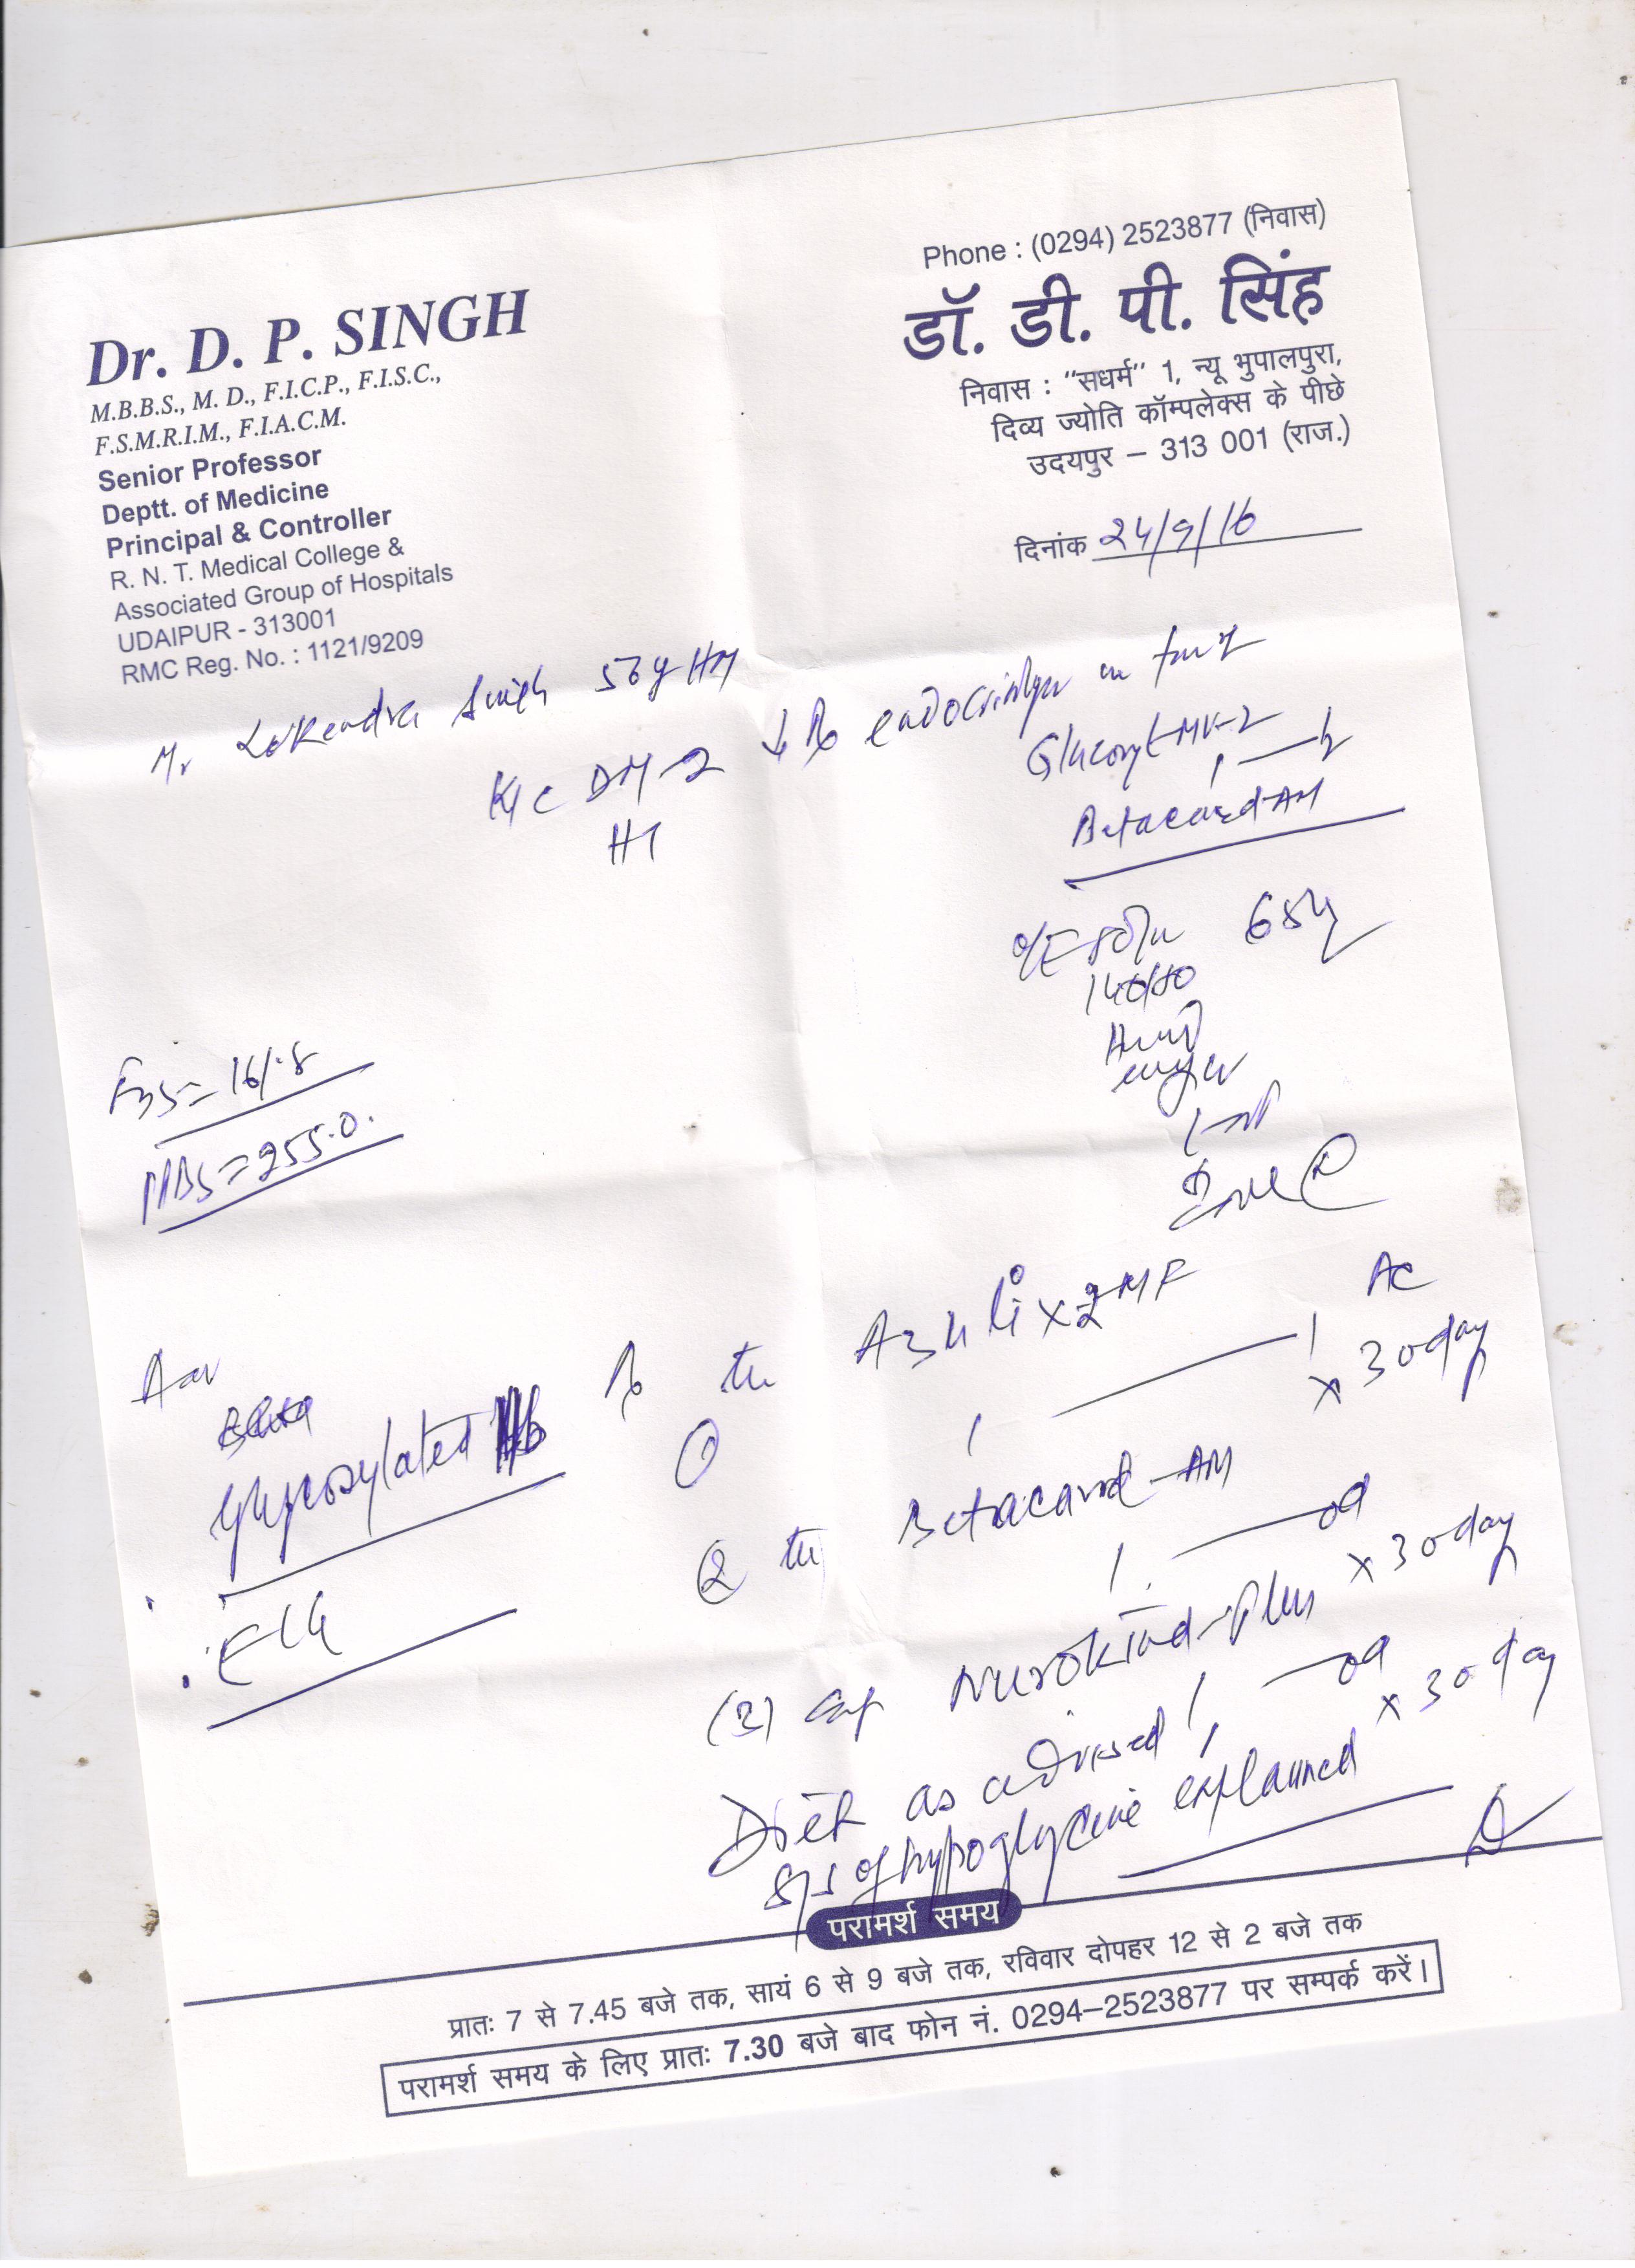 Phone : (0294) 2523877 (निवास)
Dr. D. P. SINGH
M.B.B.S., M. D., F.I.C.P., F.I.S.C.,
F.S.M.R.I.M., F.I.A.C.M.
Senior Professor
Deptt. of Medicine
Principal & Controller
R. N. T. Medical College &
Associated Group of Hospitals
UDAIPUR - 313001
RMC Reg. No. : 1121/9209
डॉ. डी. पी. सिंह
निवास : "सधर्म" 1, न्यू भुपालपुरा,
दिव्य ज्योति कॉम्पलेक्स के पीछे
उदयपुर – 313 001 (राज.)
दिनांक 24/9/16
Mr Lokendra Singh HM
K/c DM-2
HT
Betacard-AM
O/E
140/80
FBS=
PPBS=255.0.
Glycosylated Hb
ECG
Rx
AC
1 1
x 30 day
② Betacard-AM
1 od
x 30 day
(3) cap Nurokind-Plus
1 od
x 30 day
Diet as advised
S/S of hypoglycemie explained
परामर्श समय
प्रातः 7 से 7.45 बजे तक, सायं 6 से 9 बजे तक, रविवार दोपहर 12 से 2 बजे तक
परामर्श समय के लिए प्रातः 7.30 बजे बाद फोन नं. 0294–2523877 पर सम्पर्क करें।